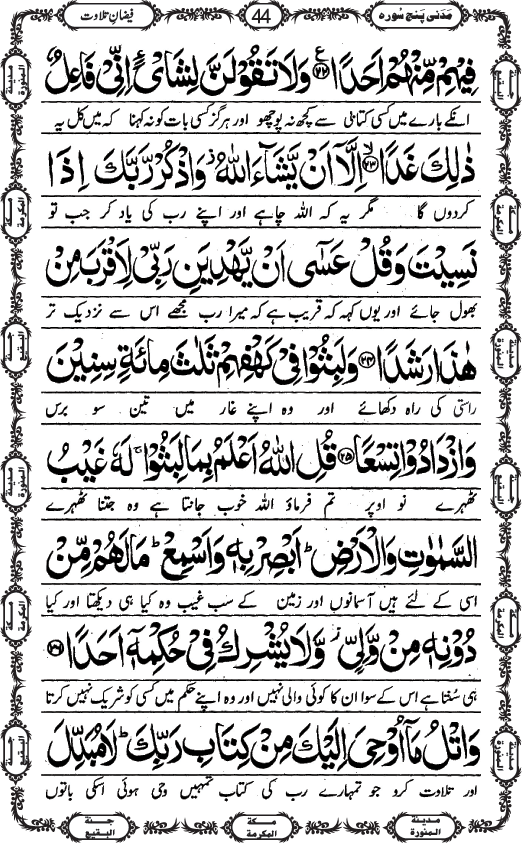 مَدَنی پنج سُورہ
44
فیضانِ تلاوت
فِیْهِمْ مِّنْهُمْ اَحَدًا۠ ﴿۲۲﴾ وَ لَا تَقُوْلَنَّ لِشَایْءٍ اِنِّیْ فَاعِلٌ
انکے بارے میں کسی کتابی سے کچھ نہ پوچھو اور ہرگز کسی بات کو نہ کہنا کہ میں کل یہ
ذٰلِكَ غَدًا ﴿۲۳﴾ اِلَّاۤ اَنْ یَّشَآءَ اللّٰهُ٘ وَ اذْكُرْ رَّبَّكَ اِذَا
کردوں گا مگر یہ کہ اللہ چاہے اور اپنے رب کی یاد کر جب تو
نَسِیْتَ وَ قُلْ عَسٰۤى اَنْ یَّهْدِیَنِ رَبِّیْ لِاَقْرَبَ مِنْ
بھول جائے اور یوں کہہ کہ قریب ہے کہ میرا رب مجھے اس سے نزدیک تر
هٰذَا رَشَدًا ﴿۲۴﴾ وَ لَبِثُوْا فِیْ كَهْفِهِمْ ثَلٰثَ مِائَةٍ سِنِیْنَ
راستی کی راہ دکھائے اور وہ اپنے غار میں تین سو برس
وَ ازْدَادُوْا تِسْعًا ﴿۲۵﴾ قُلِ اللّٰهُ اَعْلَمُ بِمَا لَبِثُوْاۚ لَهٗ غَیْبُ
ٹھہرے نو اوپر تم فرماؤ اللہ خوب جانتا ہے وہ جتنا ٹھہرے
السَّمٰوٰتِ وَ الْاَرْضِؕ اَبْصِرْ بِهٖ وَ اَسْمِعْؕ مَا لَهُمْ مِّنْ
اسی کے لئے ہیں آسمانوں اور زمین کے سب غیب وہ کیا ہی دیکھتا اور کیا
دُوْنِهٖ مِنْ وَّلِیٍّ٘ وَّ لَا یُشْرِكُ فِیْ حُكْمِهٖۤ اَحَدًا ﴿۲۶﴾
ہی سُنتا ہے اس کے سوا ان کا کوئی والی نہیں اور وہ اپنے حکم میں کسی کو شریک نہیں کرتا
وَ اتْلُ مَاۤ اُوْحِیَ اِلَیْكَ مِنْ كِتَابِ رَبِّكَۚ لَا مُبَدِّلَ
اور تلاوت کرو جو تمہارے رب کی کتاب تمہیں وحی ہوئی اسکی باتوں
مدینۃ المنورۃ
مکۃ المکرمۃ
جنۃ البقیع